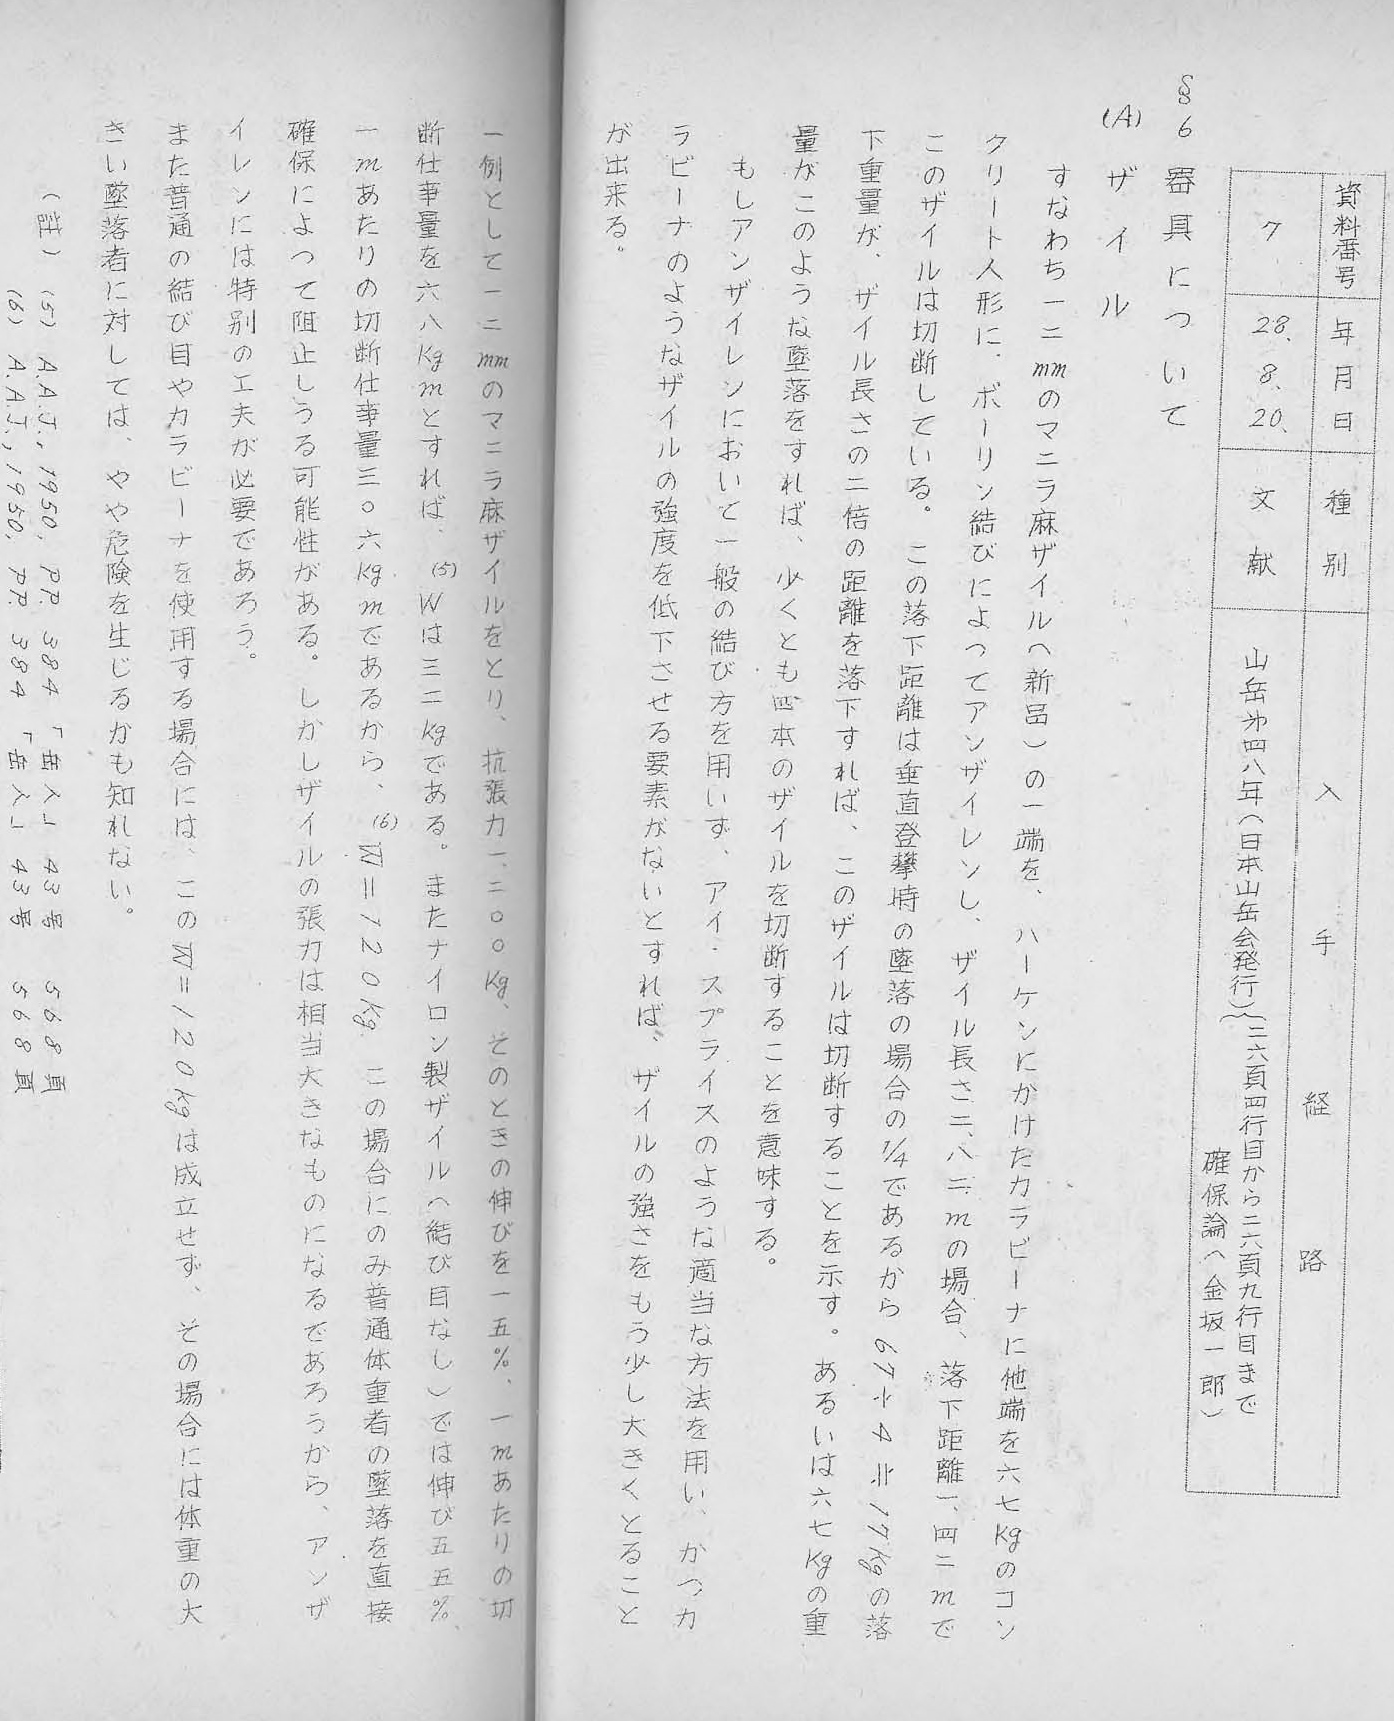 §6 器具について
資料番号 年月日 種別 入手経路
7 28.8.20. 文献 山岳第四八年(日本山岳会発行){二六頁四行目から二六頁九行目まで
確保論(金坂一郎)
(A) ザイル
すなわち一二mmのマニラ麻ザイル(新品)の一端を、ハーケンにかけたカラビーナに他端を六七Kgのコン
クリート人形に、ボーリン結びによってアンザイレンし、ザイル長さ二、八二mの場合、落下距離一、四二mで
このザイルは切断している。この落下距離は垂直登攀時の墜落の場合の1/4であるから 67÷4≒17Kgの落
下重量が、ザイル長さの二倍の距離を落下すれば、このザイルは切断することを示す。あるいは六七Kgの重
量がこのような墜落をすれば、少くとも四本のザイルを切断することを意味する。
もしアンザイレンにおいて一般の結び方を用いず、アイ・スプライスのような適当な方法を用い、かつカ
ラビーナのようなザイルの強度を低下させる要素がないとすれば、ザイルの強さをもう少し大きくとること
が出来る。
一例として一二mmのマニラ麻ザイルをとり、抗張力一、二〇〇Kg、そのときの伸びを一五%、一mあたりの切
断仕事量を六八Kgmとすれば、(5)Wは三二Kgである。またナイロン製ザイル(結び目なし)では伸び五五%
一mあたりの切断仕事量三〇六Kgmであるから、(6)W=120kg この場合にのみ普通体重者の墜落を直接
確保によって阻止しうる可能性がある。しかしザイルの張力は相当大きなものになるであろうから、アンザ
イレンには特別の工夫が必要であろう。
また普通の結び目やカラビーナを使用する場合には、このW=120kgは成立せず、その場合には体重の大
きい墜落者に対しては、やや危険を生じるかも知れない。
(註) (5) A.A.J., 1950, P.P. 384 「岳人」43号 568頁
(6) A.A.J., 1950, P.P. 384 「岳人」43号 568頁